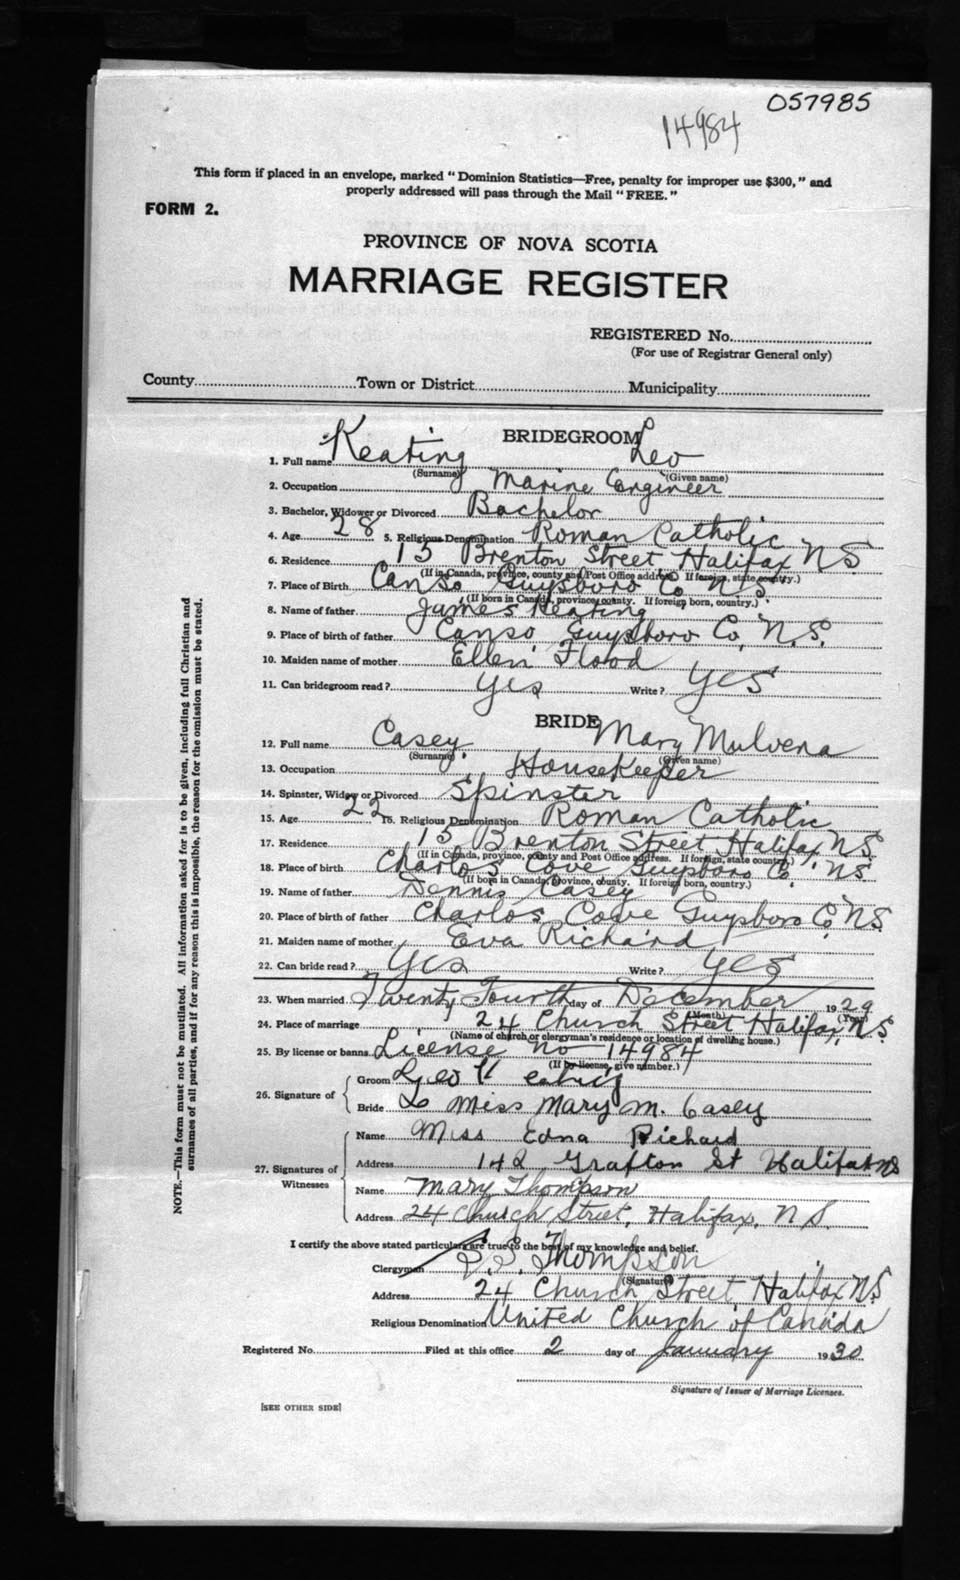 057985
14984
This form if placed in an envelope, marked "Dominion Statistics—Free, penalty for improper use $300," and
properly addressed will pass through the Mail "FREE."
FORM 2.
PROVINCE OF NOVA SCOTIA
MARRIAGE REGISTER
REGISTERED No.
(For use of Registrar General only)
County Town or District Municipality
BRIDEGROOM
1. Full name Keating Leo
(Surname) (Given name)
2. Occupation Marine Engineer
3. Bachelor, Widower or Divorced Bachelor
4. Age 28 5. Religious Denomination Roman Catholic
6. Residence 15 Brenton Street, Halifax NS
(If in Canada, province, county and Post Office address. If foreign, state country.)
7. Place of Birth Canso Guysboro Co N.S.
(If born in Canada, province, county. If foreign born, country.)
8. Name of father James Keating
9. Place of birth of father Canso Guysboro Co, N.S.
10. Maiden name of mother Ellen Flood
11. Can bridegroom read? Yes Write? Yes
BRIDE
12. Full name Casey Mary Mulvena
(Surname) (Given name)
13. Occupation HouseKeeper
14. Spinster, Widow or Divorced Spinster
15. Age 22 16. Religious Denomination Roman Catholic
17. Residence 15 Brenton Street Halifax NS
(If in Canada, province, county and Post Office address. If foreign, state country.)
18. Place of birth Charlos Cove Guysboro Co, NS.
(If born in Canada, province, county. If foreign born, country.)
19. Name of father Dennis Casey
20. Place of birth of father Charlos Cove Guysboro Co, NS.
21. Maiden name of mother Eva Richard
22. Can bride read? Yes Write? Yes
23. When married Twenty Fourth day of December 1929
(Month) (Year)
24. Place of marriage 24 Church Street Halifax, N.S.
(Name of church or clergyman's residence or location of dwelling house.)
25. By license or banns License no 14984
(If by license, give number.)
26. Signature of
Groom Leo Keating
Bride Miss Mary M. Casey
27. Signatures of Witnesses
Name Miss Edna Richard
Address 142 Grafton St Halifax NS
Name Mary Thompson
Address 24 Church Street, Halifax, N S.
I certify the above stated particulars are true to the best of my knowledge and belief.
Clergyman S. Thompson
(Signature)
Address 24 Church Street Halifax N.S.
Religious Denomination United Church of Canada
Registered No. Filed at this office 2 day of January 1930
Signature of Issuer of Marriage Licenses.
[SEE OTHER SIDE]
NOTE.—This form must not be mutilated. All information asked for is to be given, including full Christian and
surnames of all parties, and if for any reason this is impossible, the reason for the omission must be stated.